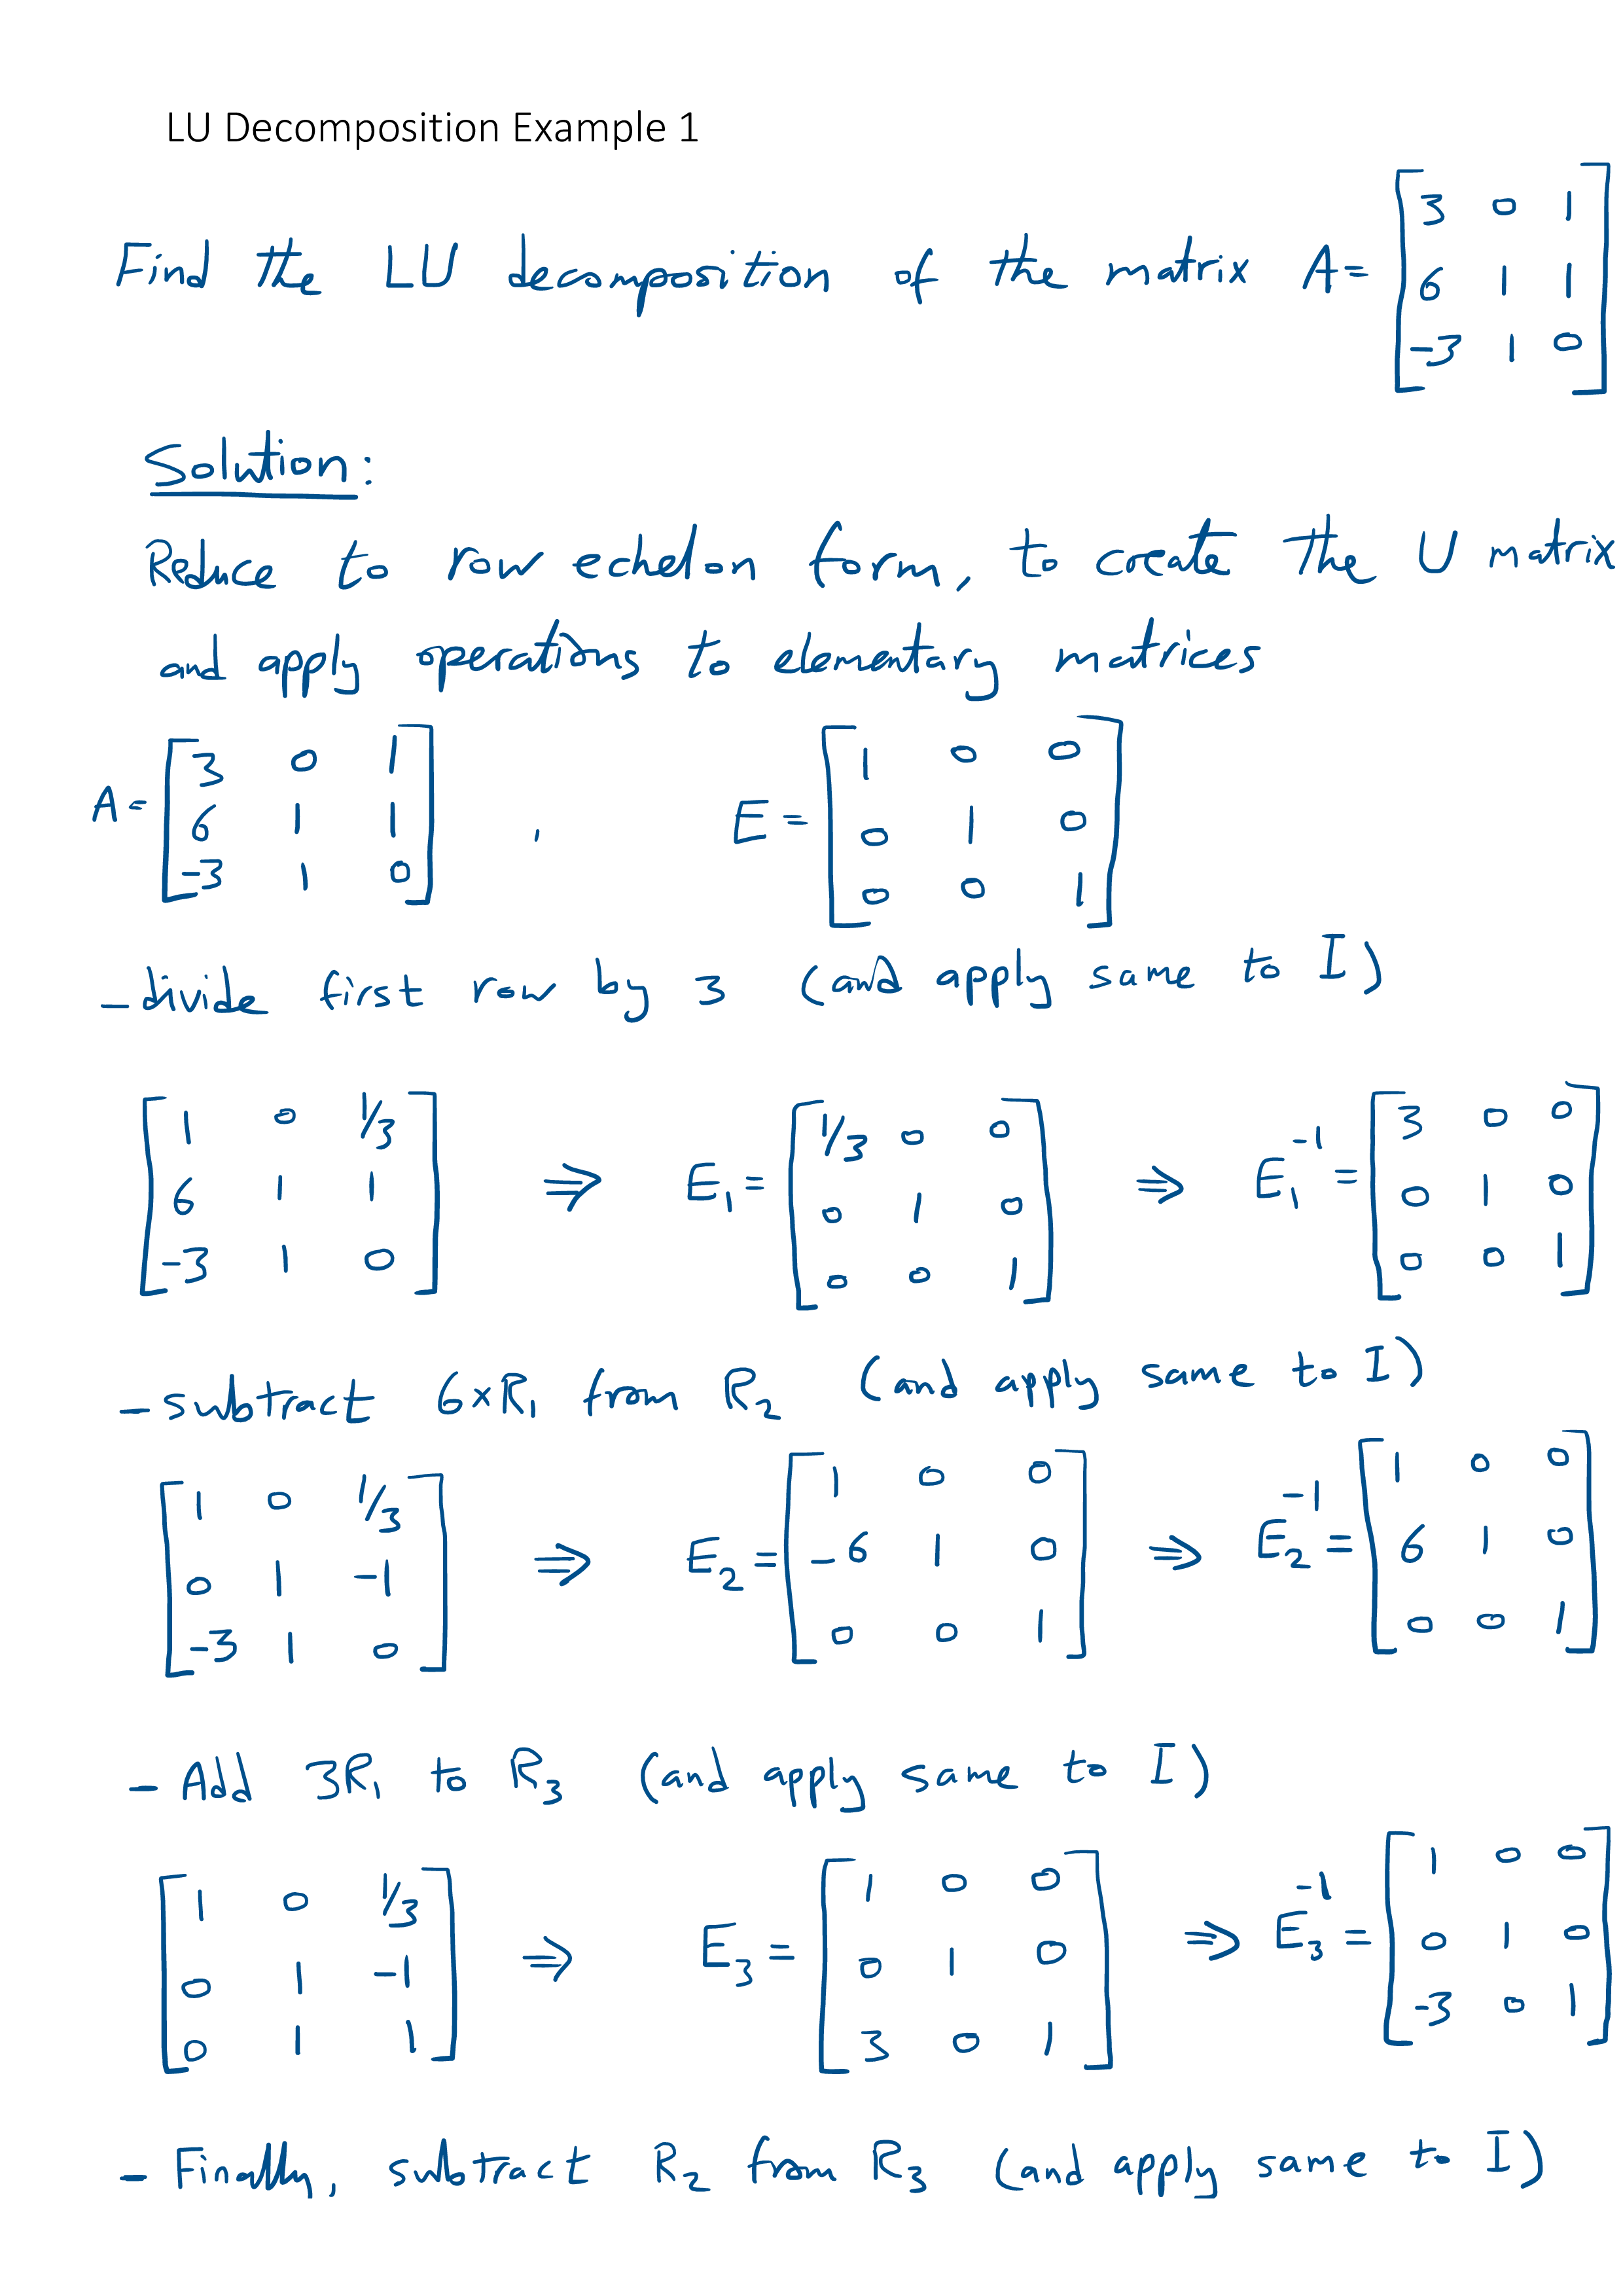 LU Decomposition Example 1
Find the LU decomposition of the matrix A= [3 0 1
6 1 1
-3 1 0]
Solution:
Reduce to row echelon form, to create the U matrix
and apply operations to elementary matrices
A= [3 0 1 , E= [1 0 0
6 1 1 0 1 0
-3 1 0] 0 0 1]
-divide first row by 3 (and apply same to I)
[1 0 1/3 ⇒ E₁= [1/3 0 0 ⇒ E₁⁻¹= [3 0 0
6 1 1 0 1 0 0 1 0
-3 1 0] 0 0 1] 0 0 1]
-subtract 6×R₁ from R₂ (and apply same to I)
[1 0 1/3 ⇒ E₂= [1 0 0 ⇒ E₂⁻¹= [1 0 0
0 1 -1 -6 1 0 6 1 0
-3 1 0] 0 0 1] 0 0 1]
- Add 3R₁ to R₃ (and apply same to I)
[1 0 1/3 ⇒ E₃= [1 0 0 ⇒ E₃⁻¹= [1 0 0
0 1 -1 0 1 0 0 1 0
0 1 1] 3 0 1] -3 0 1]
- Finally, subtract R₂ from R₃ (and apply same to I)